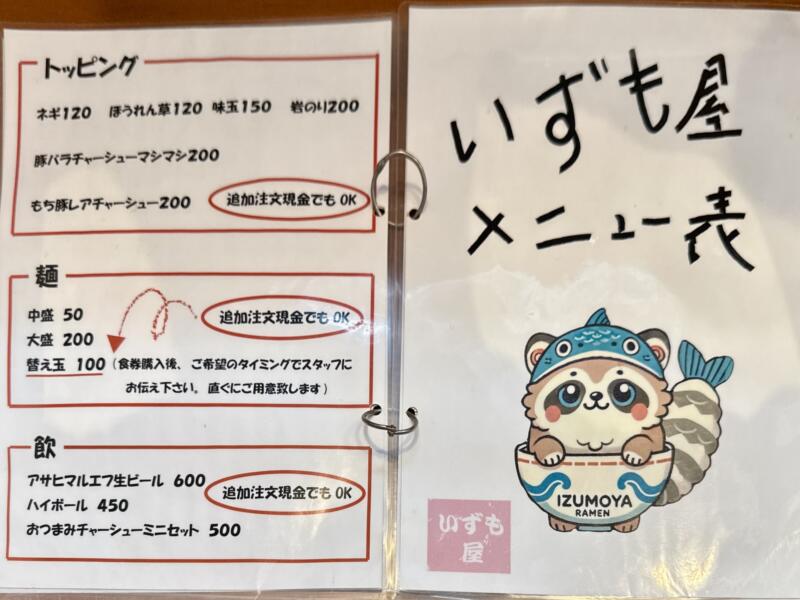 トッピング
ネギ120 ほうれん草120 味玉150 岩のり200
豚バラチャーシューマシマシ200
もち豚レアチャーシュー200 追加注文現金でもOK
麺
中盛 50 追加注文現金でもOK
大盛 200
替え玉 100 (食券購入後、ご希望のタイミングでスタッフに
お伝え下さい。直ぐにご用意致します)
飲
アサヒマルエフ生ビール 600
ハイボール 450 追加注文現金でもOK
おつまみチャーシューミニセット 500
いずも屋
メニュー表
IZUMOYA
RAMEN
いずも
屋